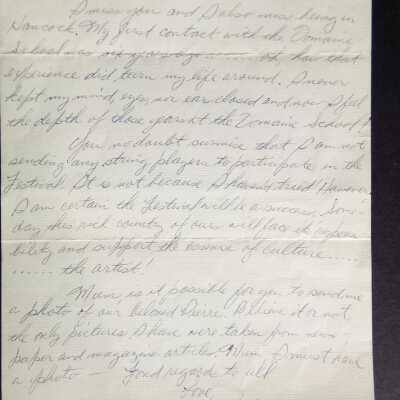 I miss you and I also miss being in
Hancock. My first contact with the Domaine
School was six years ago ..... oh, how that
experience did turn my life around. I never
kept my mind, eyes, nor ear closed and now I feel
the depth of those years at the Domaine School!
You no doubt surmise that I am not
sending any string players to participate in the
Festival. It is not because I haven't tried! However
I am certain the Festival will be a success. Some-
day this rich country of ours will face its responsi-
bility and support the essence of culture .....
...... the artist!
Mum, is it possible for you to send me
a photo of our beloved Pierre? Believe it or not
the only pictures I have were taken from news-
paper and magazine articles. Mum I must have
a photo — Fond regards to all
Love,